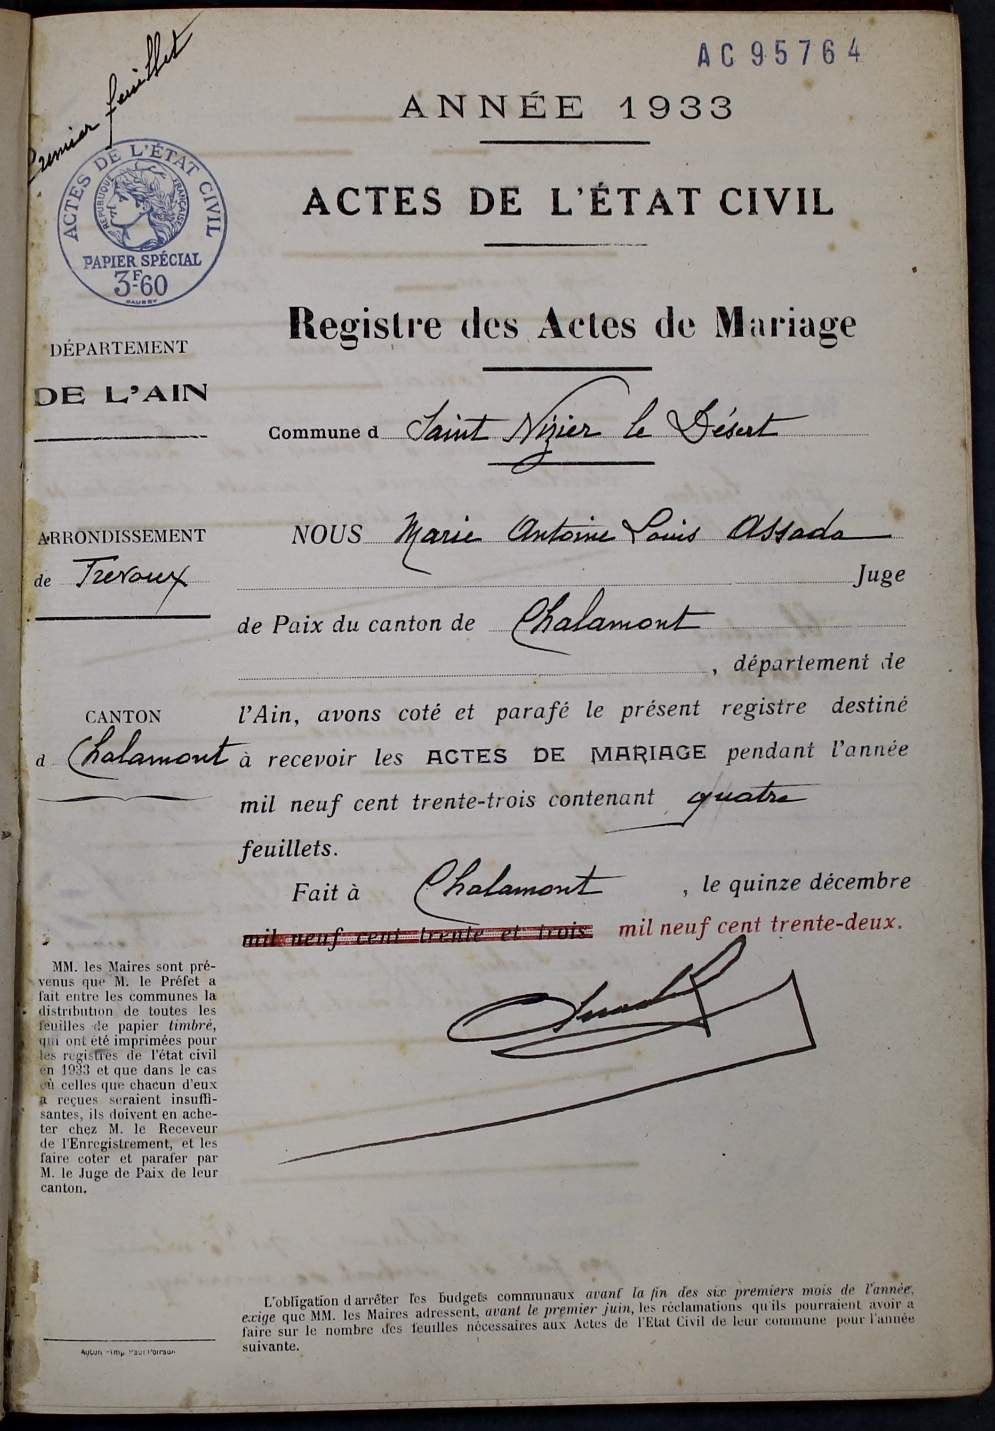 AC 95764
Premier feuillet
ANNÉE 1933
ACTES DE L'ÉTAT CIVIL
RÉPUBLIQUE FRANÇAISE
PAPIER SPÉCIAL
3F60
ACTES DE L'ÉTAT CIVIL
Registre des Actes de Mariage
DÉPARTEMENT
DE L'AIN
Commune d Saint Nizier le Désert
ARRONDISSEMENT
de Trévoux
CANTON
d Chalamont
NOUS Marie Antoine Louis Assada
Juge
de Paix du canton de Chalamont
, département de
l'Ain, avons coté et parafé le présent registre destiné
à recevoir les ACTES DE MARIAGE pendant l'année
mil neuf cent trente-trois contenant quatre
feuillets.
Fait à Chalamont, le quinze décembre
mil neuf cent trente et trois mil neuf cent trente-deux.
MM. les Maires sont pré-
venus que M. le Préfet a
fait entre les communes la
distribution de toutes les
feuilles de papier timbré,
qui ont été imprimées pour
les registres de l'état civil
en 1933 et que dans le cas
où celles que chacun d'eux
a reçues seraient insuffi-
santes, ils doivent en ache-
ter chez M. le Receveur
de l'Enregistrement, et les
faire coter et parafer par
M. le Juge de Paix de leur
canton.
L'obligation d'arrêter les budgets communaux avant la fin des six premiers mois de l'année,
exige que MM. les Maires adressent, avant le premier juin, les réclamations qu'ils pourraient avoir à
faire sur le nombre des feuilles nécessaires aux Actes de l'Etat Civil de leur commune pour l'année
suivante.